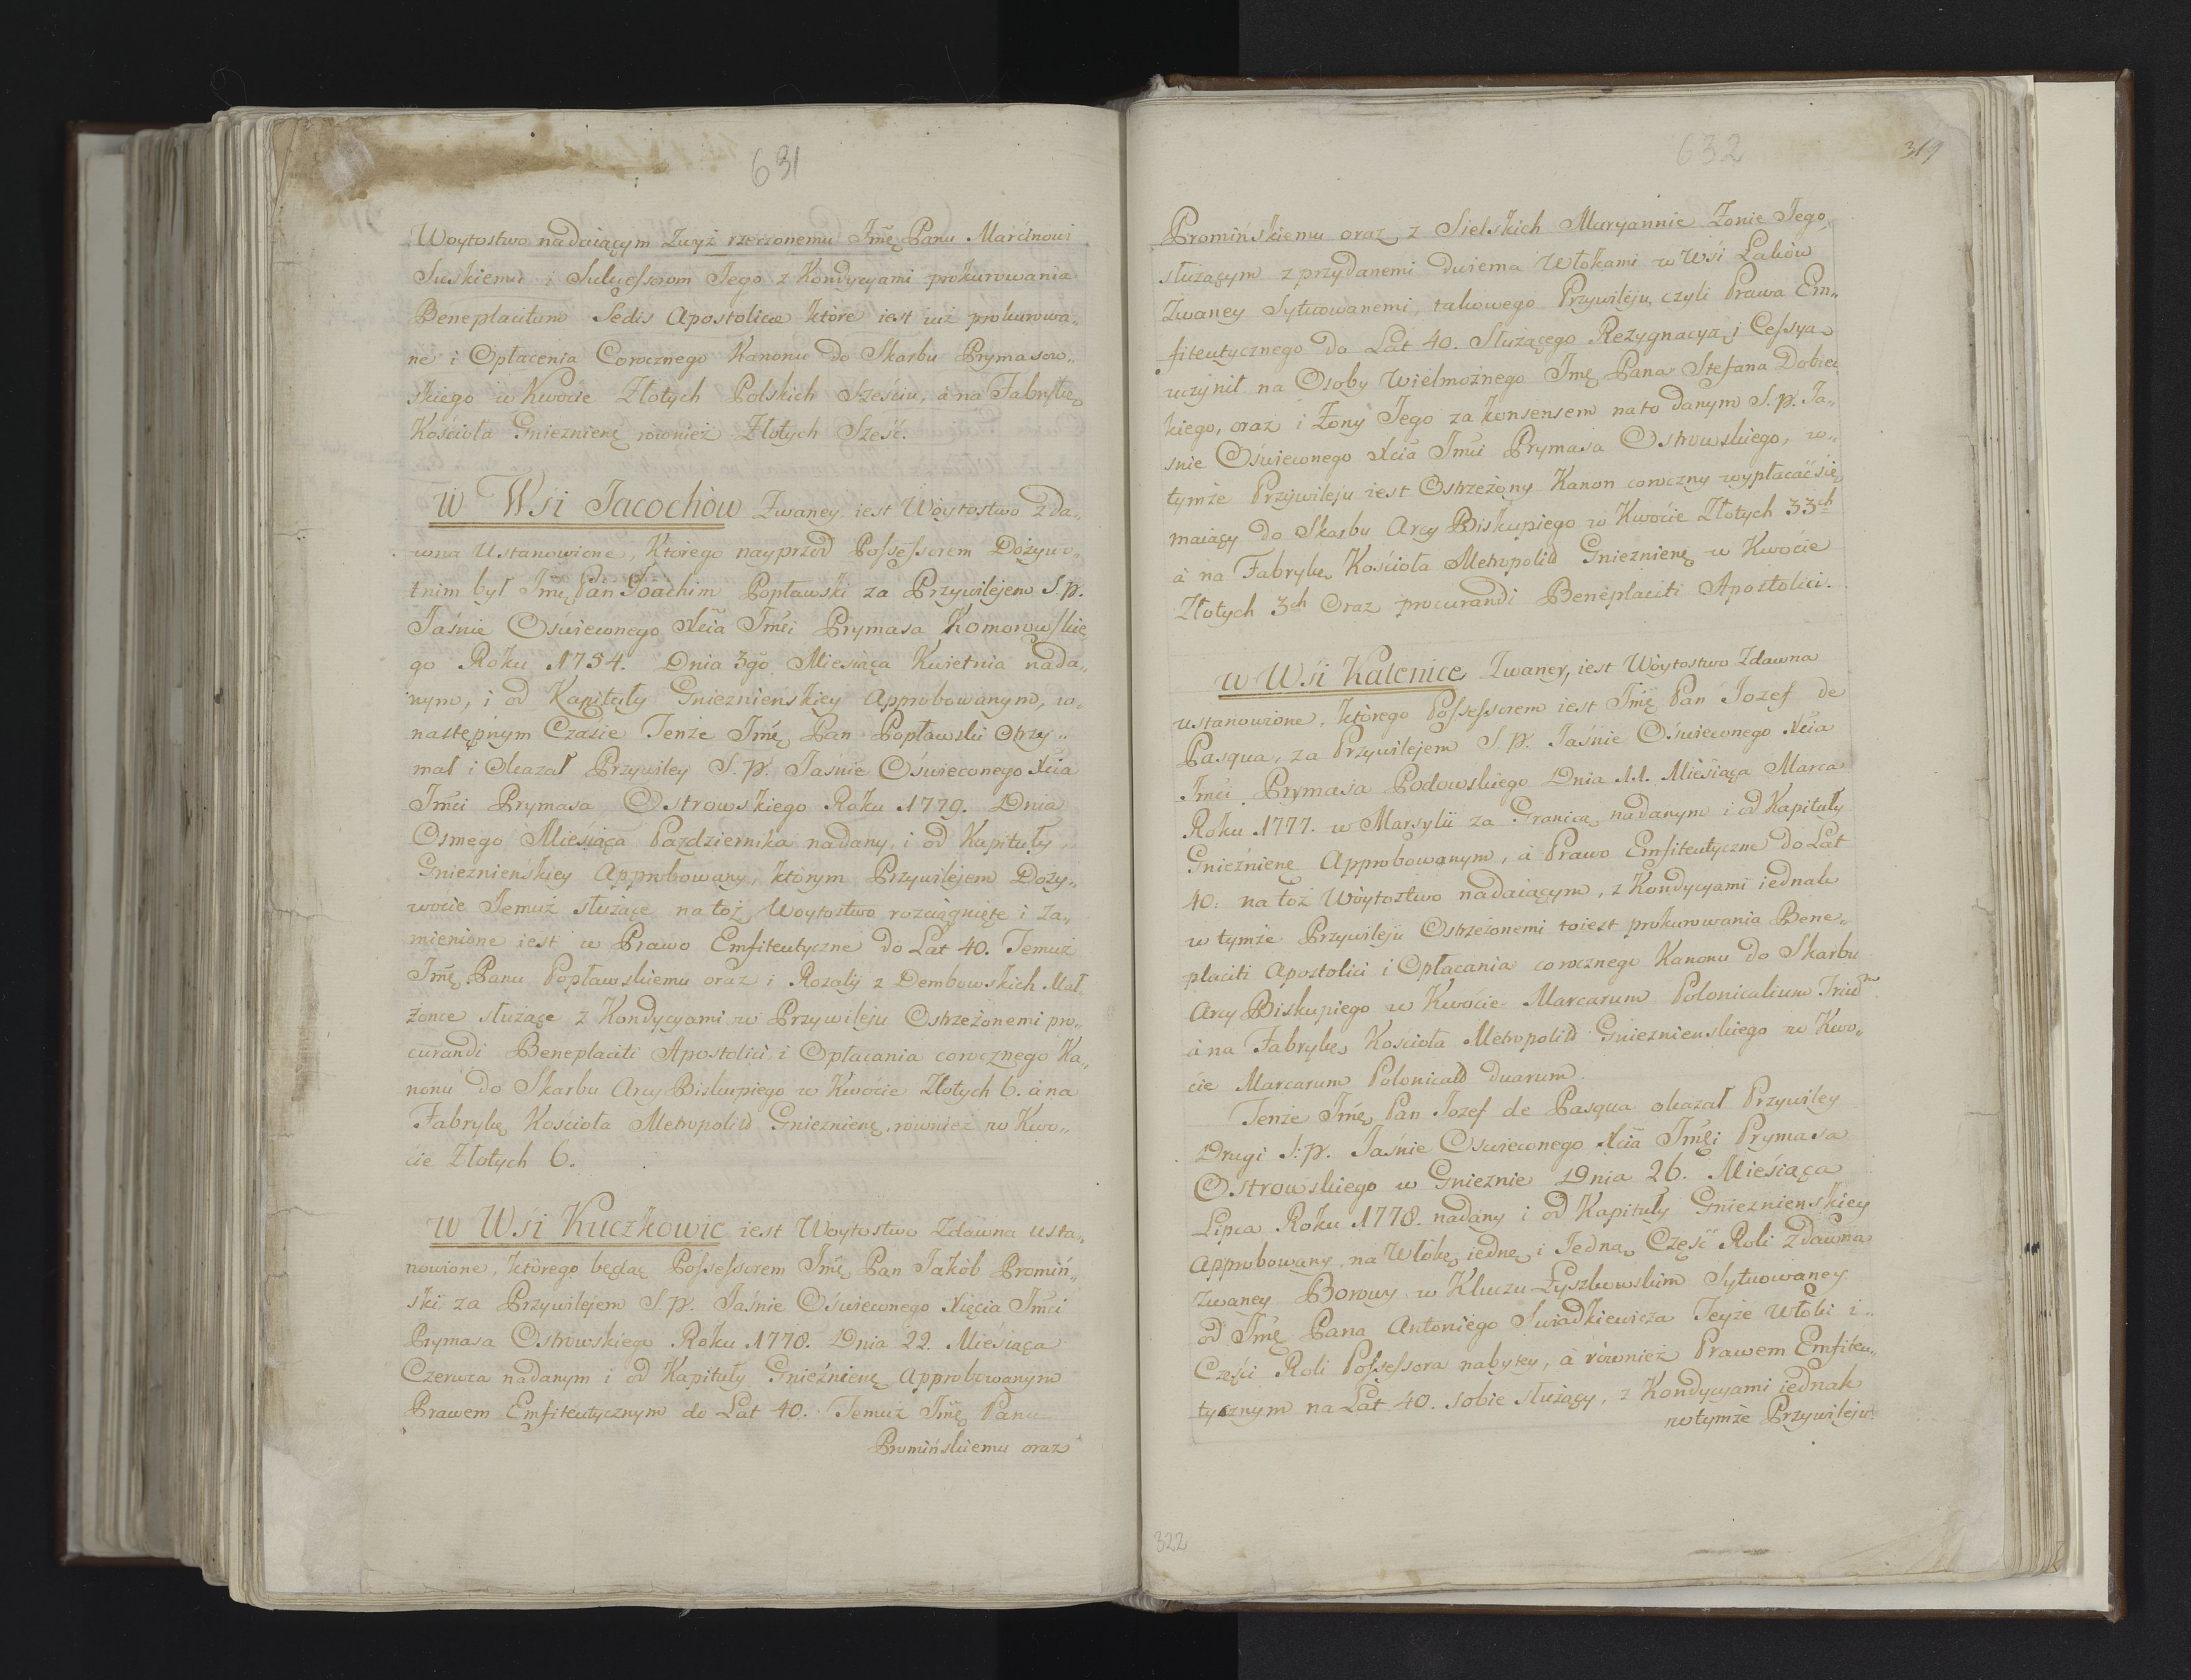 631
Woytostwo nadaiącym Zwyż rzeczonemu Jmę Panu Marcinowi
Suskiemu i Sukcessorom Jego z Kondycyami prokurowania
Beneplacitum Sedis Apostolicæ które iest iuż prokurowa„
ne i Opłacenia Corocznego Kanonu do Skarbu Prymasow„
skiego w Kwocie Złotych Polskich Sześciu, à na Fabrykę
Kościoła Gnieznienę rownież Złotych Sześć.
W Wsi Jacochow Zwaney iest Woytostwo zda„
wna Ustanowione, Którego nayprzod Possessorem Dożywo„
tnim był Jmę Pan Joachim Popławski za Przywilejem S.p.
Jaśnie Oświeconego Xcia Jmci Prymasa Komorowskie„
go Roku 1754. Dnia 3go Miesiąca Kwietnia nada„
nym, i od Kapituły Gnieznieńskiey Approbowanym, w„
następnym Czasie Tenże Jmę Pan Popławski Otrzy„
mał i Okazał Przywiley S.p. Jaśnie Oświeconego Xcia
Jmci Prymasa Ostrowskiego Roku 1779. Dnia
Osmego Miesiąca Pazdziernika nadany, i od Kapituły
Gnieznieńskiey Approbowany, którym Przywilejem Doży„
wocie Jemuż służące na toż Woytostwo rozciągnięte i za„
mienione iest w Prawo Emfiteutyczne do Lat 40. Temuż
Jmę Panu Popławskiemu oraz i Rozalij z Dembowskich Mał„
żonce służące z Kondycyami w Przywileju Ostrzeżonemi pro„
curandi Beneplaciti Apostolici i Opłacania corocznego Ka„
nonu do Skarbu Arcy Biskupiego w Kwocie Złotych 6. à na
Fabrykę Kościoła Metropolid Gnieznienę, rownież w Kwo„
cie Złotych 6.
W Wsi Kuczkowic iest Woytostwo Zdawna usta„
nowione, którego będąc Possessorem Jmę Pan Jakób Promiń„
ski za Przywilejem S.p. Jaśnie Oświeconego Xięcia Jmci
Prymasa Ostrowskiego Roku 1778. Dnia 22. Miesiąca
Czerwca nadanym i od Kapituły Gnieźnienę Approbowanym
Prawem Emfiteutycznym do Lat 40. Temuż Jmę Panu
Promińskiemu oraz
632
319
Promińskiemu oraz z Sielskich Maryannie Zonie Jego,
służącym z przydanemi dwiema Włokami w Wsi Laków
Zwaney Sytuowanemi, takowego Przywileju, czyli Prawa Em„
fiteutycznego do Lat 40. Służącego Rezygnacyą i Cessyą
uczynił na Osoby Wielmożnego Jmę Pana Stefana Dobiec
kiego, oraz i Zony Jego za konsensem na to danym S.p. Ja„
snie Oświeconego Xcia Jmci Prymasa Ostrowskiego, w„
tymże Przywileju iest Ostrzeżony Kanon coroczny wypłacać się
maiący do Skarbu Arcy Biskupiego w Kwocie Złotych 33ch
à na Fabrykę Kościoła Metropolid Gnieznienę w Kwocie
Złotych 3ch Oraz procurandi Beneplaciti Apostolici.
W Wsi Kalenice Zwaney, iest Woytostwo Zdawna
ustanowione, którego Possessorem iest Jmę Pan Jozef de
Pasqua, za Przywilejem S.p. Jaśnie Oświeconego Xcia
Jmci Prymasa Podowskiego Dnia 11. Miesiąca Marca
Roku 1777. w Marsylii za Granicą nadanym i od Kapituły
Gnieźnienę Approbowanym, à Prawo Emfiteutyczne do Lat
40. na toż Woytostwo nadaiącym, z Kondycyami iednak
w tymże Przywileju Ostrzeżonemi toiest prokurowania Bene„
placiti Apostolici i Opłacania corocznego Kanonu do Skarbu
Arcy Biskupiego w Kwocie Marcarum Polonicalium Triũm
à na Fabrykę Kościoła Metropolid Gnieznienskiego w Kwo„
cie Marcarum Polonicald duarum.
Tenże Jmę Pan Jozef de Pasqua okazał Przywiley
Drugi S.p. Jaśnie Oswieconego Xcia Jmci Prymasa
Ostrowskiego w Gnieznie Dnia 26. Miesiąca
Lipca Roku 1778. nadany i od Kapituły Gnieznienskiey
Approbowany na Włókę iednę i Jedną Część Roli Zdawna
zwaney Borowy w Kluczu Łyszkowskim Sytuowaney
od Jmę Pana Antoniego Swiadkiewicza Teyże Włoki i„
Części Roli Possessora nabytey, à również Prawem Emfiteu„
tycznym na Lat 40. sobie służący, z Kondycyami iednak
w tymże Przywileju
322